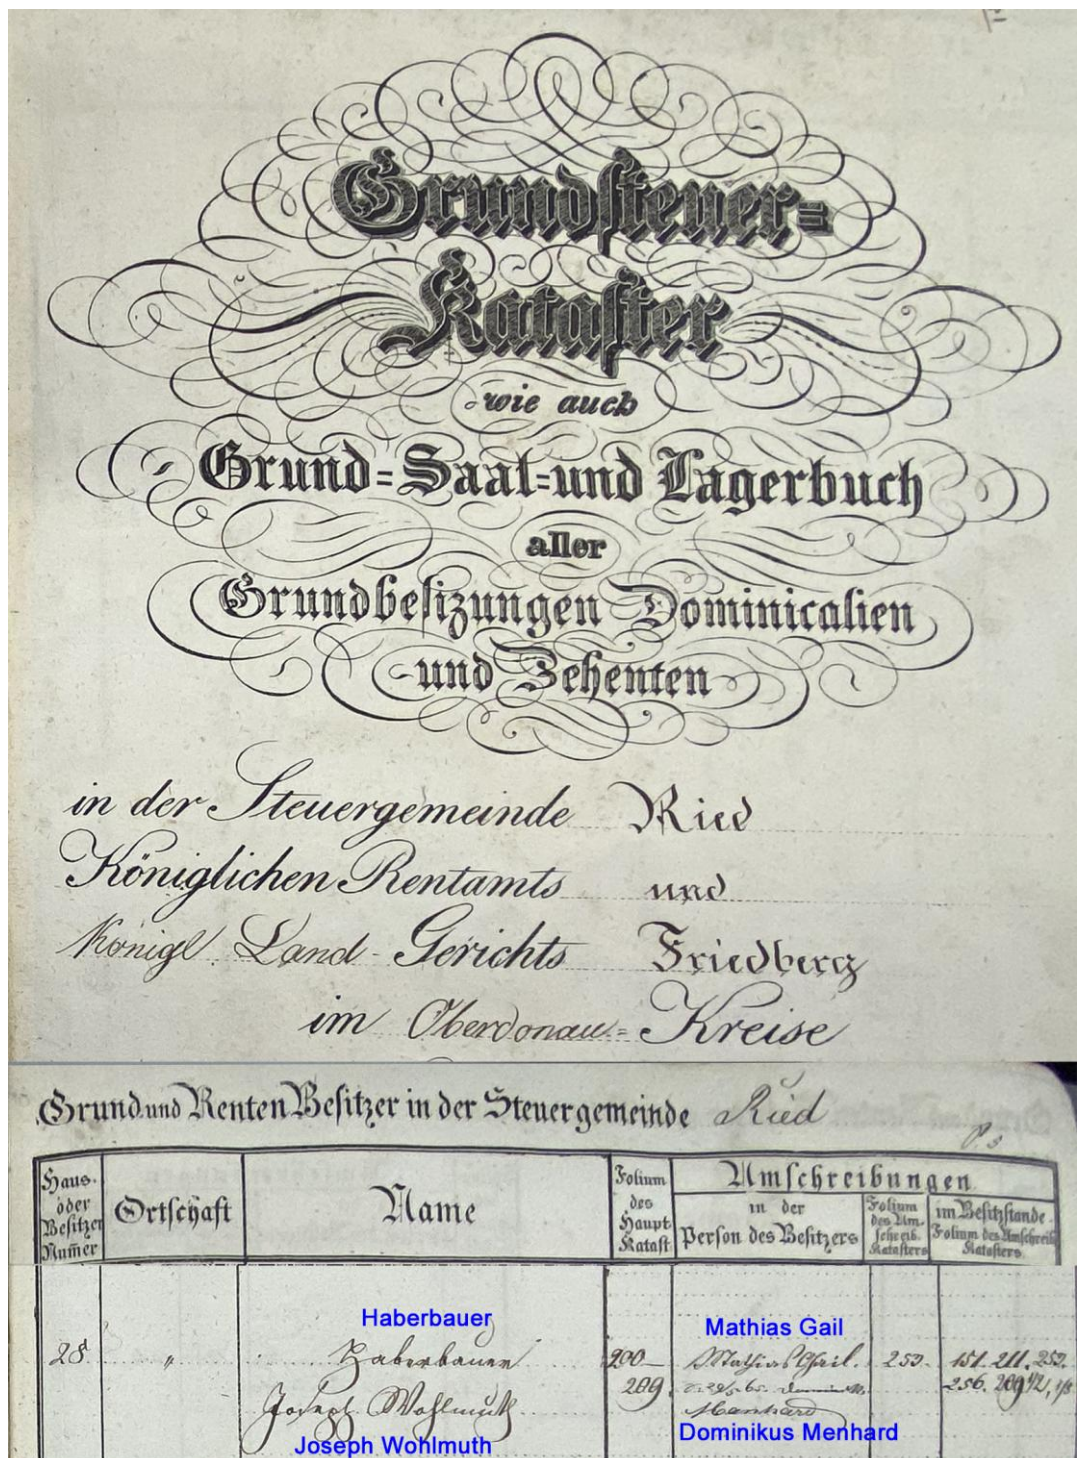 Grundsteuer=
Kataster
wie auch
Grund=Saal=und Lagerbuch
aller
Grundbesizungen Dominicalien
und Zehenten
in der Steuergemeinde Ried
Königlichen Rentamts und
Königl. Land-Gerichts Friedberg
im Oberdonau=Kreise
Grund und Renten Besitzer in der Steuergemeinde Ried
Haus- oder Besitzer Num̅er
Ortschaft
Name
Folium des Haupt Katast
Umschreibungen
in der Person des Besitzers
Folium des Umschreib. Katasters
im Besitzstande. Folium des Umschreib Katasters
Haberbauer
Mathias Gail
28 " Haberbauer 200- Mathias Gail. 253. 151. 211. 253.
209. 256. 209 1/2, 1/3
Joseph Wohlmuth Menhard
Joseph Wohlmuth
Dominikus Menhard